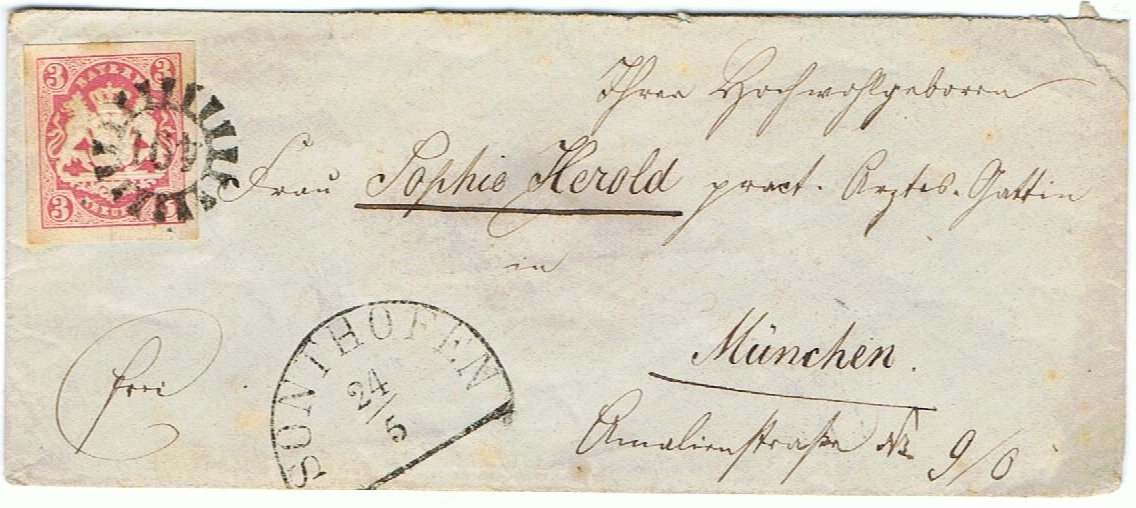 3 BAYERN 3
3 KREUZER 3
Ihrer Hochwohlgeboren
Frau Sophie Herold pract. Arztes-Gattin
in
München.
Amalienstraße No 9/0
frei
SONTHOFEN
24/5